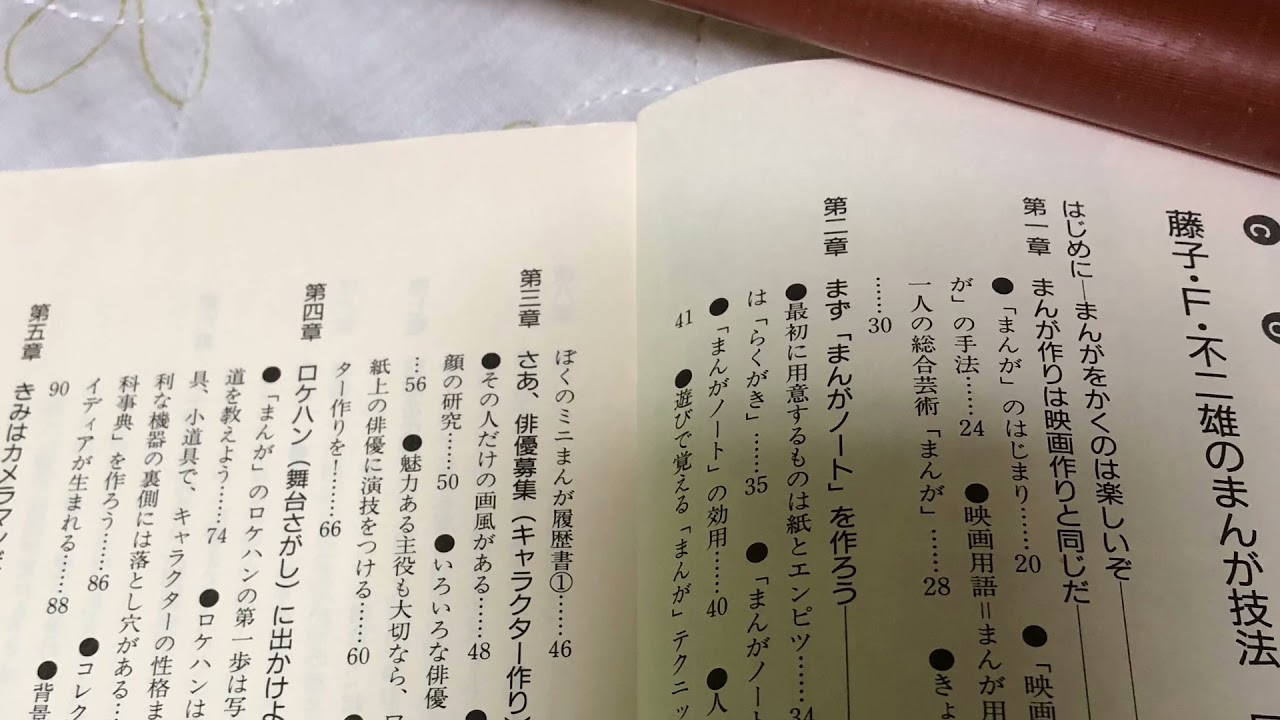 C
藤子・F・不二雄のまんが技法
はじめに―まんがをかくのは楽しいぞ
第一章 まんが作りは映画作りと同じだ
●「まんが」のはじまり……20 ●「映画
が」の手法……24 ●映画用語＝まんが用
一人の総合芸術「まんが」……28 ●きょ
……30
第二章 まず「まんがノート」を作ろう
●最初に用意するものは紙とエンピツ……34
は「らくがき」……35 ●「まんがノート
●「まんがノート」の効用……40 ●人
41 ●遊びで覚える「まんが」テクニッ
ぼくのミニまんが履歴書①……46
第三章 さあ、俳優募集（キャラクター作り）
●その人だけの画風がある……48
顔の研究……50 ●いろいろな俳優
…56 ●魅力ある主役も大切なら、
紙上の俳優に演技をつける……60
ター作りを！……66
第四章 ロケハン（舞台さがし）に出かけよ
●「まんが」のロケハンの第一歩は写
道を教えよう……74 ●ロケハンは
具、小道具で、キャラクターの性格ま
利な機器の裏側には落とし穴がある…
科事典」を作ろう……86 ●コレク
イディアが生まれる……88 ●背景
90
第五章 きみはカメラマン